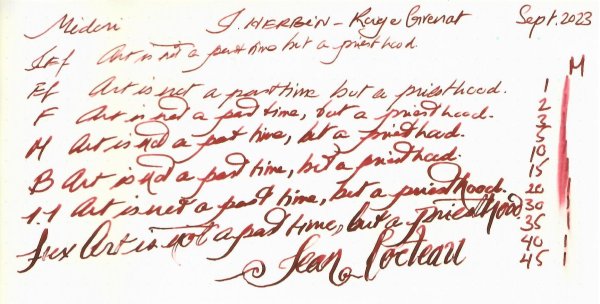 Midori J. HERBIN - Rouge Grenat Sept. 2023
Eef Art is not a pasttime but a priesthood.
M
Ef Art is not a pasttime but a priesthood. 1
F Art is not a past time, but a priesthood. 2
3
M Art is not a past time, but a priesthood. 5
10
B Art is not a past time, but a priesthood. 15
1.1 Art is not a past time, but a priesthood. 20
30
flex Art is not a past time, but a priesthood 35
40
Jean Cocteau 45